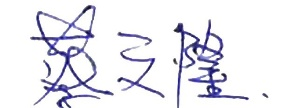 蔡文隆